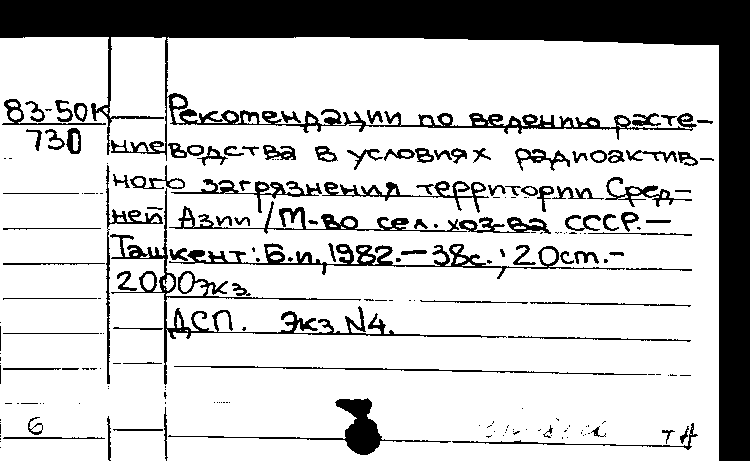 83-50К Рекомендации по ведению расте-
730
ниеводства в условиях радиоактив-
ного загрязнения территории Сред-
ней Азии / М-во сел. хоз-ва СССР.—
Ташкент: Б.и., 1982.— 38с.; 20см.-
2000экз.
ДСП. Экз. N4.
6